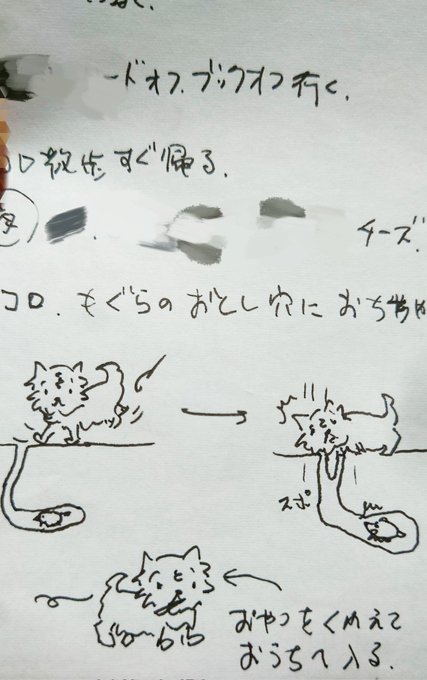 ードオフ、ブックオフ行く.
コロ散歩すぐ帰る.
チーズ.
コロ.もぐらのおとし穴におち
スポ
おやつをくわえて
おうちへ入る.